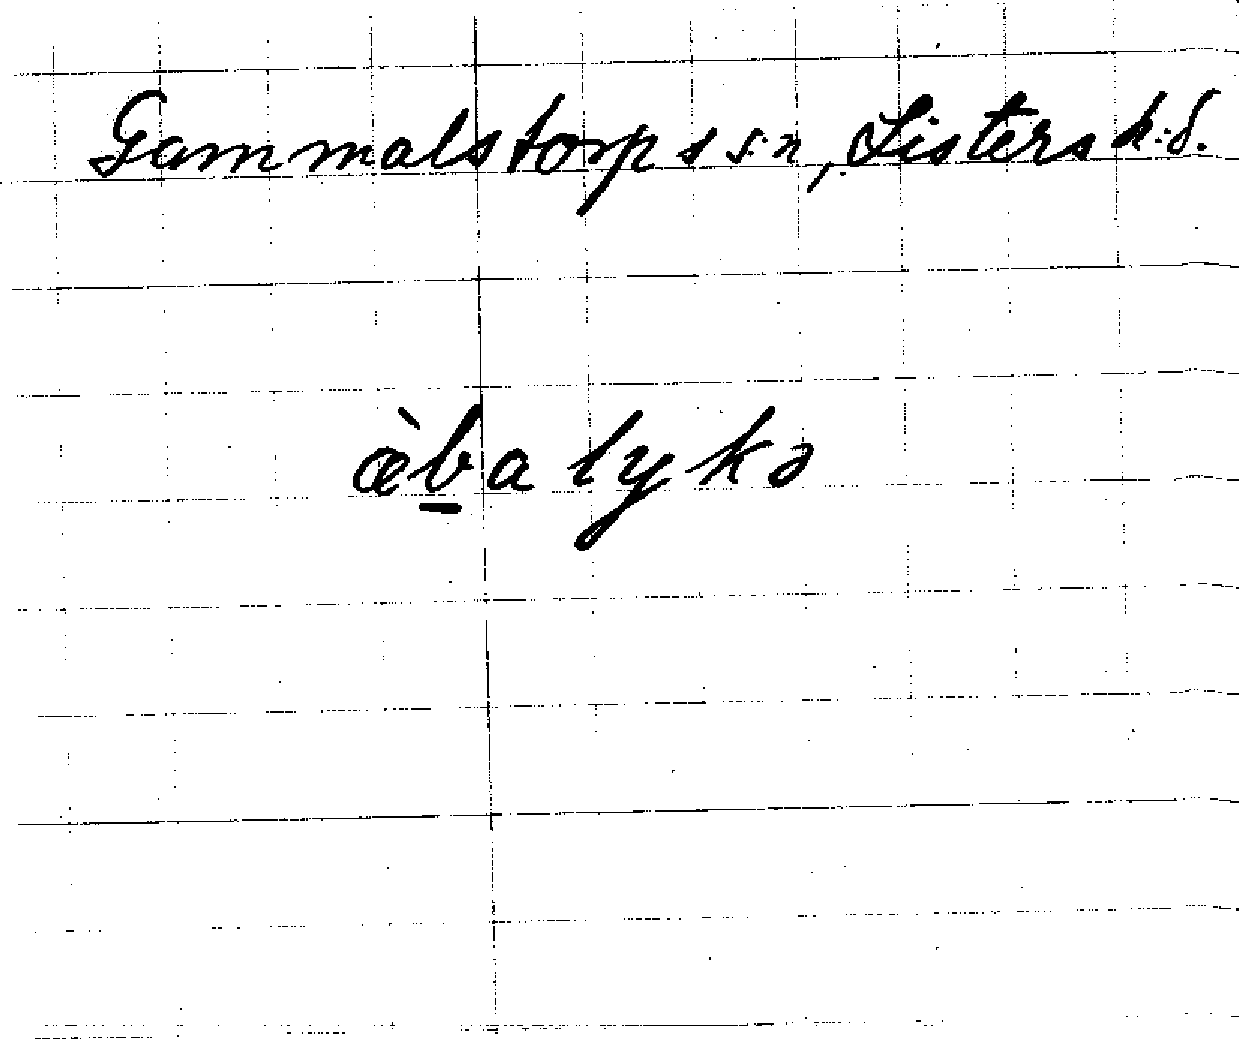 Gammalstorps s:n, Listers h:d.
æ̀b̲a lykə